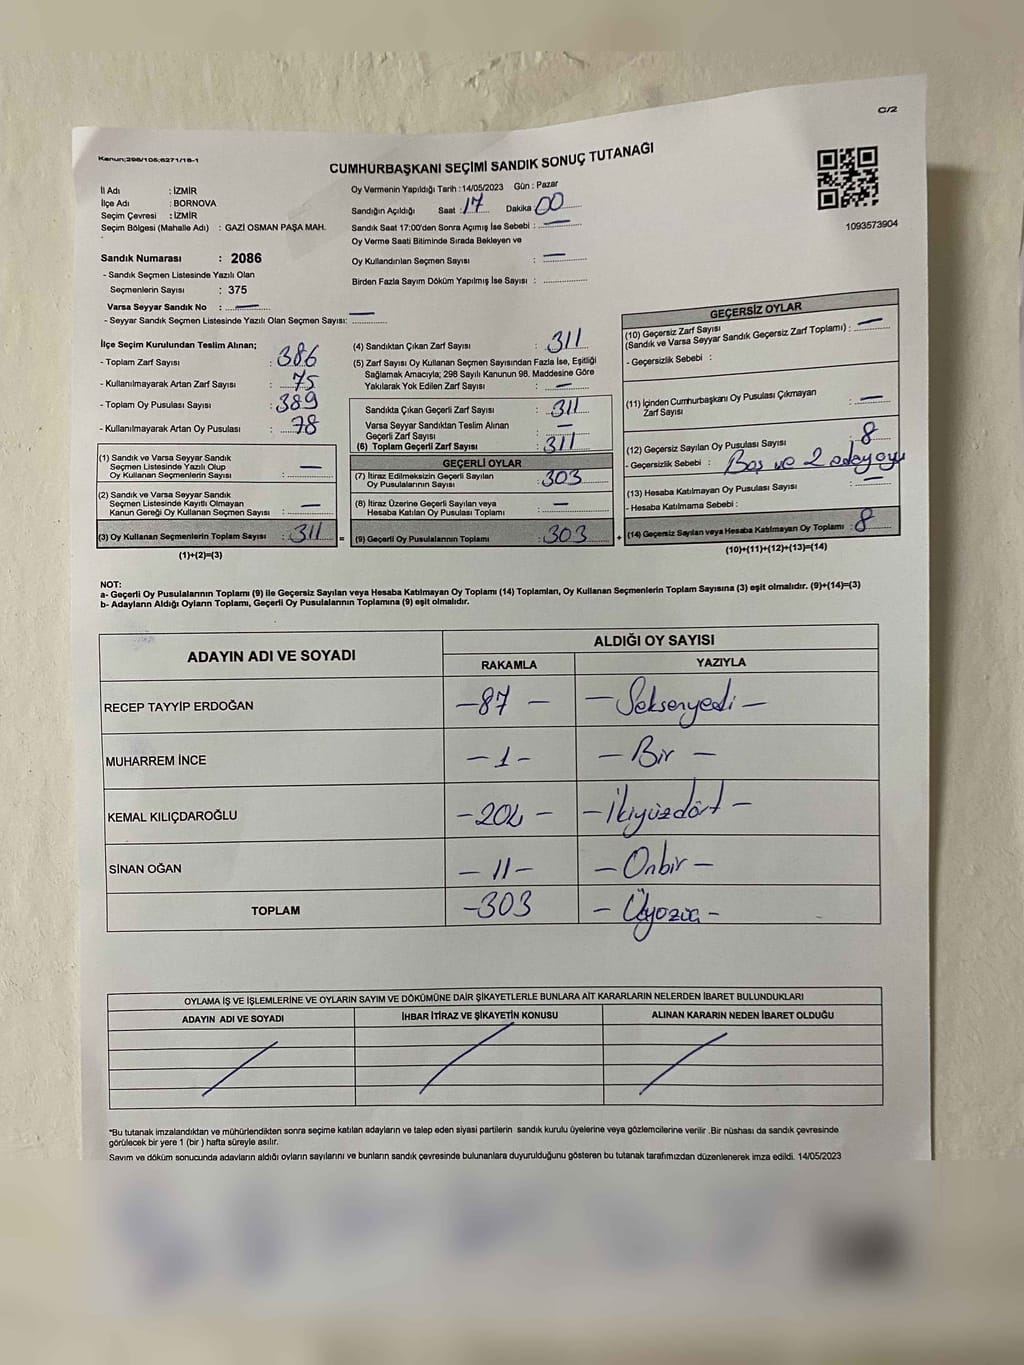 C/2
Kanun;298/105;6271/18-1
CUMHURBAŞKANI SEÇİMİ SANDIK SONUÇ TUTANAĞI
1093573904
İl Adı : İZMİR
İlçe Adı : BORNOVA
Seçim Çevresi : İZMİR
Seçim Bölgesi (Mahalle Adı) : GAZİ OSMAN PAŞA MAH.
Sandık Numarası : 2086
- Sandık Seçmen Listesinde Yazılı Olan
Seçmenlerin Sayısı : 375
Varsa Seyyar Sandık No : —
- Seyyar Sandık Seçmen Listesinde Yazılı Olan Seçmen Sayısı: —
Oy Vermenin Yapıldığı Tarih : 14/05/2023 Gün : Pazar
Sandığın Açıldığı Saat : 17 Dakika 00
Sandık Saat 17:00'den Sonra Açılmış İse Sebebi : —
Oy Verme Saati Bitiminde Sırada Bekleyen ve
Oy Kullandırılan Seçmen Sayısı : —
Birden Fazla Sayım Döküm Yapılmış İse Sayısı :
İlçe Seçim Kurulundan Teslim Alınan;
- Toplam Zarf Sayısı : 386
- Kullanılmayarak Artan Zarf Sayısı : 75
- Toplam Oy Pusulası Sayısı : 389
- Kullanılmayarak Artan Oy Pusulası : 78
(1) Sandık ve Varsa Seyyar Sandık
Seçmen Listesinde Yazılı Olup
Oy Kullanan Seçmenlerin Sayısı : —
(2) Sandık ve Varsa Seyyar Sandık
Seçmen Listesinde Kayıtlı Olmayan
Kanun Gereği Oy Kullanan Seçmen Sayısı : —
(3) Oy Kullanan Seçmenlerin Toplam Sayısı : 311 =
(1)+(2)=(3)
(4) Sandıktan Çıkan Zarf Sayısı : 311
(5) Zarf Sayısı Oy Kullanan Seçmen Sayısından Fazla İse, Eşitliği
Sağlamak Amacıyla; 298 Sayılı Kanunun 98. Maddesine Göre
Yakılarak Yok Edilen Zarf Sayısı : —
Sandıkta Çıkan Geçerli Zarf Sayısı : 311
Varsa Seyyar Sandıktan Teslim Alınan
Geçerli Zarf Sayısı : —
(6) Toplam Geçerli Zarf Sayısı : 311
GEÇERLİ OYLAR
(7) İtiraz Edilmeksizin Geçerli Sayılan
Oy Pusulalarının Sayısı : 303
(8) İtiraz Üzerine Geçerli Sayılan veya
Hesaba Katılan Oy Pusulası Toplamı : —
(9) Geçerli Oy Pusulalarının Toplamı : 303 +
GEÇERSİZ OYLAR
(10) Geçersiz Zarf Sayısı
(Sandık ve Varsa Seyyar Sandık Geçersiz Zarf Toplamı) : —
- Geçersizlik Sebebi :
(11) İçinden Cumhurbaşkanı Oy Pusulası Çıkmayan
Zarf Sayısı : —
(12) Geçersiz Sayılan Oy Pusulası Sayısı : 8
- Geçersizlik Sebebi : Boş ve 2 aday oyu
(13) Hesaba Katılmayan Oy Pusulası Sayısı : —
- Hesaba Katılmama Sebebi :
(14) Geçersiz Sayılan veya Hesaba Katılmayan Oy Toplamı : 8
(10)+(11)+(12)+(13)=(14)
NOT:
a- Geçerli Oy Pusulalarının Toplamı (9) ile Geçersiz Sayılan veya Hesaba Katılmayan Oy Toplamı (14) Toplamları, Oy Kullanan Seçmenlerin Toplam Sayısına (3) eşit olmalıdır. (9)+(14)=(3)
b- Adayların Aldığı Oyların Toplamı, Geçerli Oy Pusulalarının Toplamına (9) eşit olmalıdır.
ADAYIN ADI VE SOYADI ALDIĞI OY SAYISI
RAKAMLA YAZIYLA
RECEP TAYYİP ERDOĞAN -87- -Seksenyedi-
MUHARREM İNCE -1- -Bir-
KEMAL KILIÇDAROĞLU -204- -İkiyüzdört-
SİNAN OĞAN -11- -Onbir-
TOPLAM -303
OYLAMA İŞ VE İŞLEMLERİNE VE OYLARIN SAYIM VE DÖKÜMÜNE DAİR ŞİKAYETLERLE BUNLARA AİT KARARLARIN NELERDEN İBARET BULUNDUKLARI
ADAYIN ADI VE SOYADI İHBAR İTİRAZ VE ŞİKAYETİN KONUSU ALINAN KARARIN NEDEN İBARET OLDUĞU
*Bu tutanak imzalandıktan ve mühürlendikten sonra seçime katılan adayların ve talep eden siyasi partilerin sandık kurulu üyelerine veya gözlemcilerine verilir .Bir nüshası da sandık çevresinde
görülecek bir yere 1 (bir ) hafta süreyle asılır.
Sayım ve döküm sonucunda adayların aldığı oyların sayılarını ve bunların sandık çevresinde bulunanlara duyurulduğunu gösteren bu tutanak tarafımızdan düzenlenerek imza edildi. 14/05/2023